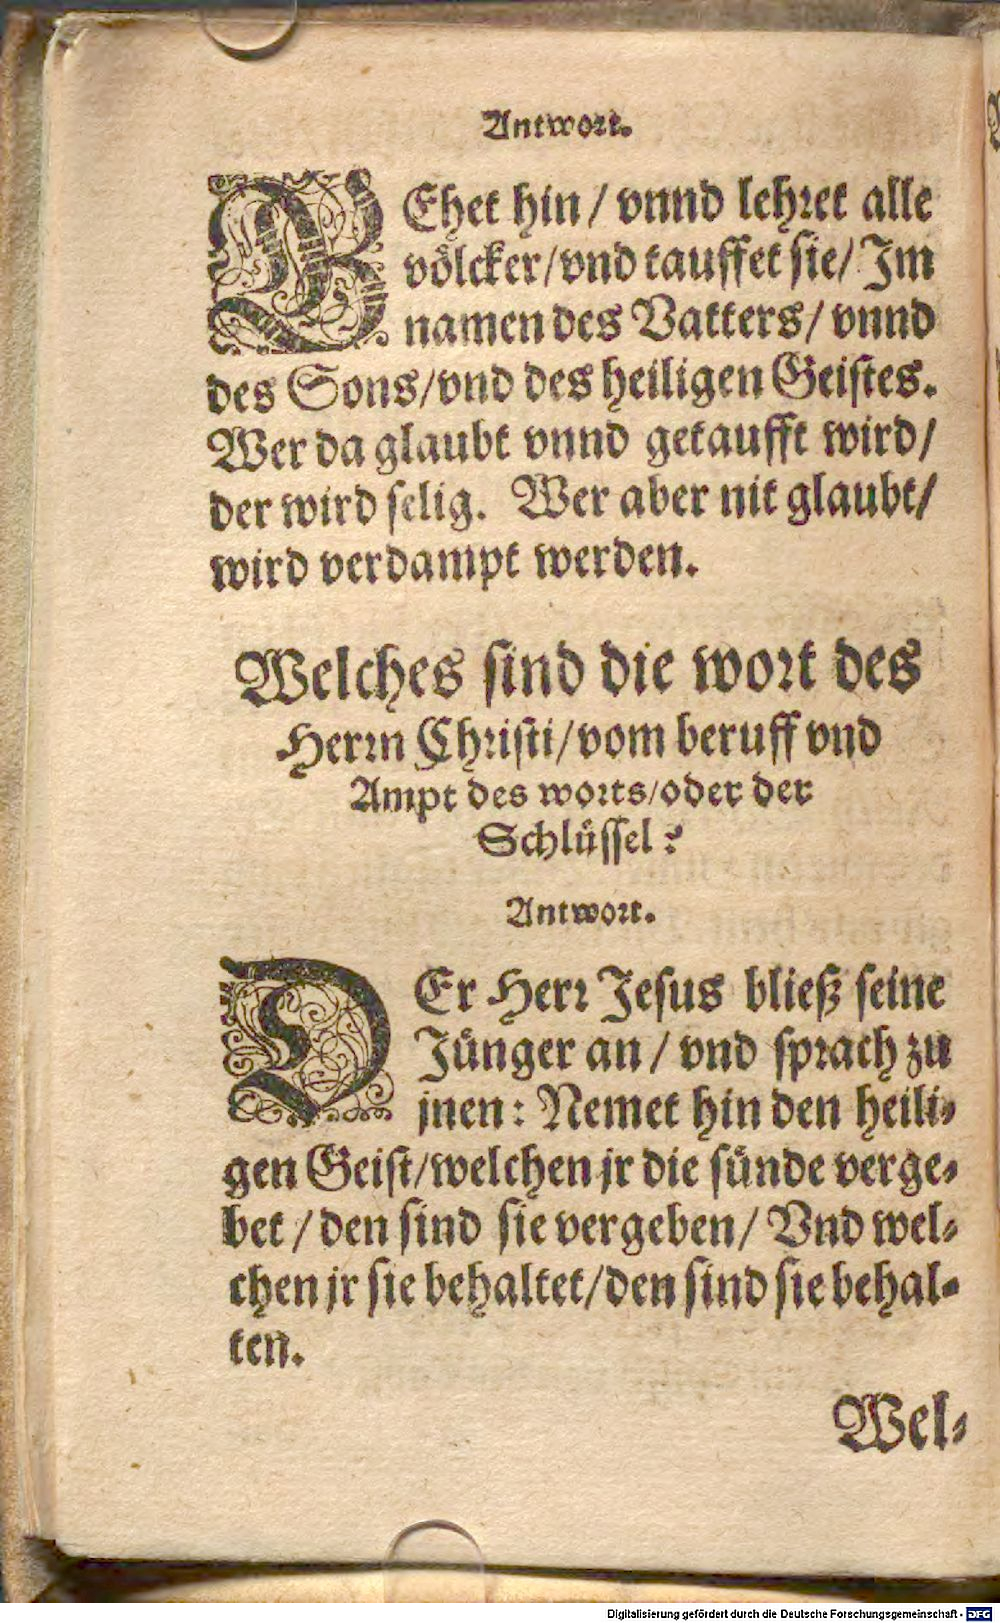 Antwort.
GEhet hin / vnnd lehret alle
völcker/vnd tauffet sie/ Im
namen des Vatters/ vnnd
des Sons/vnd des heiligen Geistes.
Wer da glaubt vnnd getaufft wird/
der wird selig. Wer aber nit glaubt/
wird verdampt werden.
Welches sind die wort des
Herrn Christi/vom beruff vnd
Ampt des worts/oder der
Schlüssel?
Antwort.
DEr Herr Jesus bließ seine
Jünger an / vnd sprach zu
jnen: Nemet hin den heili-
gen Geist/welchen jr die sünde verge-
bet / den sind sie vergeben/ Vnd wel-
chen jr sie behaltet/den sind sie behal-
ten.
Wel-
Digitalisierung gefördert durch die Deutsche Forschungsgemeinschaft - DFG